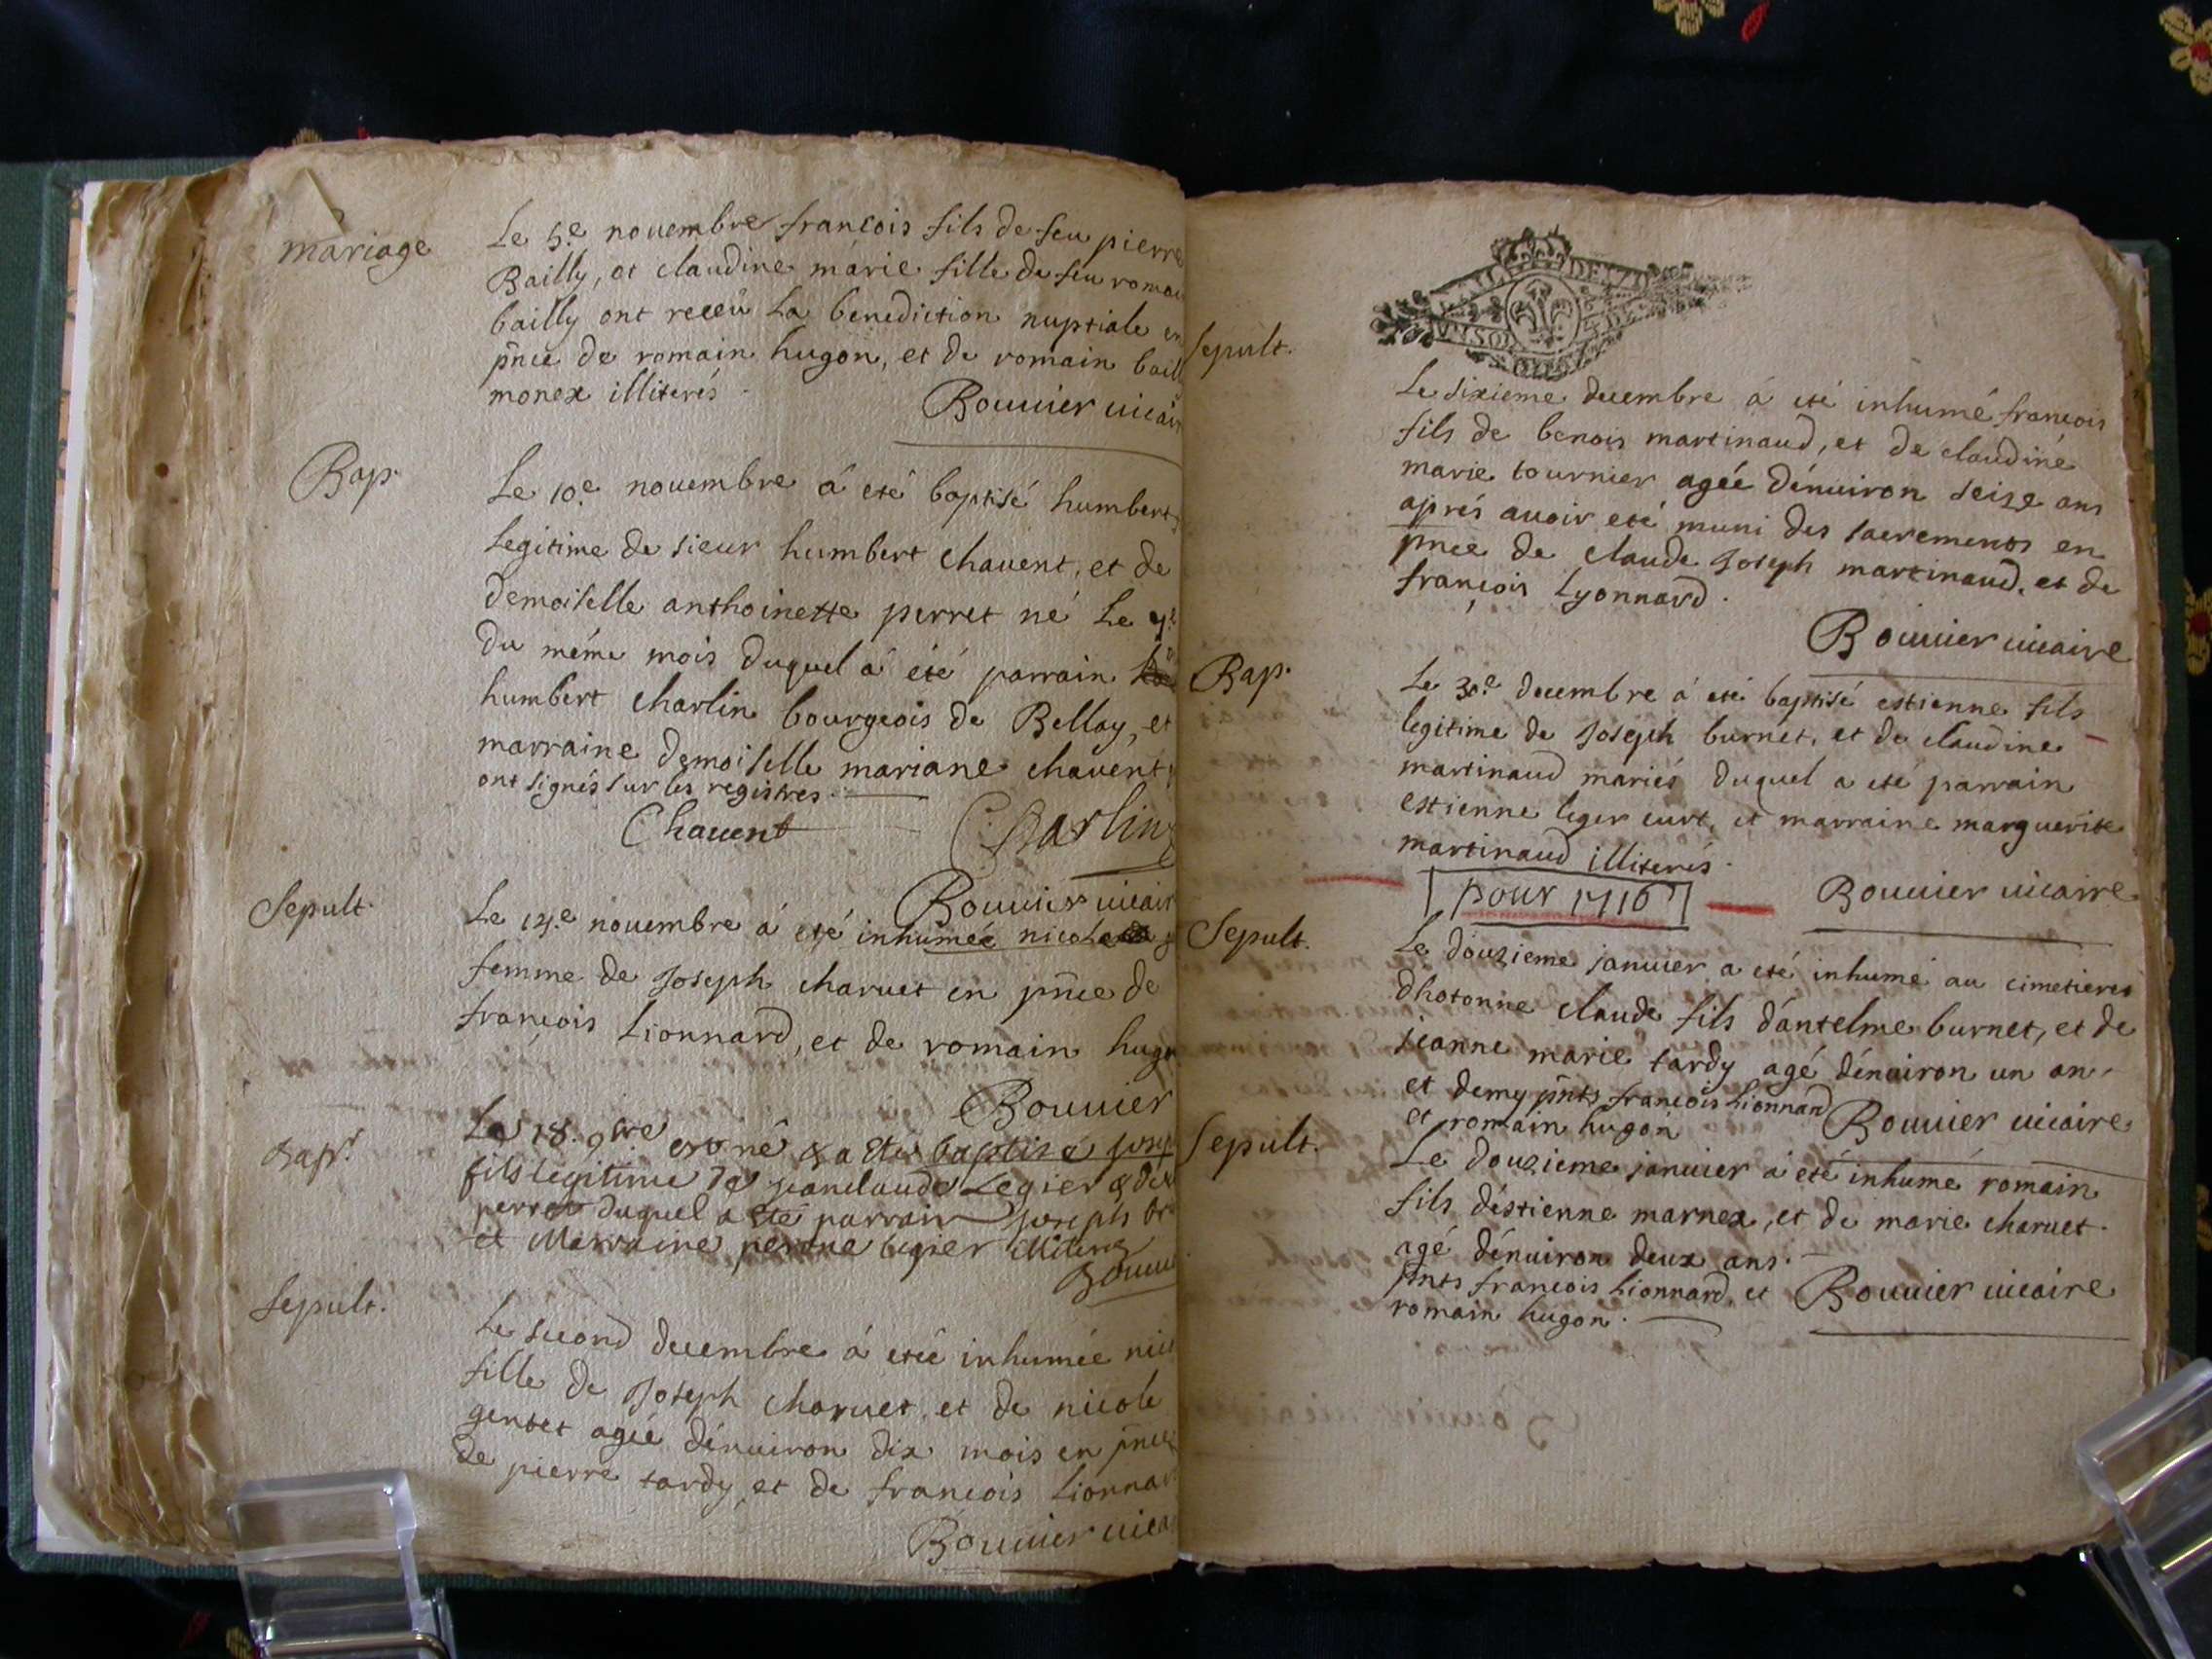 mariage
Le 5.e novembre francois fils de feu pierre
Bailly, et claudine marie fille de feu romai
bailly ont receü la benediction nuptiale en
pnce de romain hugon, et de romain bail
monex illiterés
Bouvier vicair
Bap.
Le 10.e novembre á eté baptisé humbert
legitime de sieur humbert chavent, et de
demoiselle anthoinette perret né le 9.e
du méme mois duquel á été parrain
humbert charlin bourgeois de Bellay, et
marraine demoiselle mariane chavent
ont signés sur les registres
Chavent Charlin
Bouvier vicair
Sepult.
Le 14.e novembre á eté inhumée nicole
femme de Joseph charvet en pnce de
francois Lionnard, et de romain hugo
Bouvier
Bapt.
Le 18. 9bre est né & a été baptisé Josep
fils legitime de janclaude Legier & de
perret duquel a été parrain Joseph
et Marraine legier
Bouvi
Sepult.
Le second decembre á eteé inhumée nico
fille de Joseph charvet, et de nicole
gentet agée dénviron dix mois en pnce
de pierre tardy et de francois Lionnar
Bouvier vica
Sepult.
Le sixieme decembre á eté inhumé francois
fils de benois martinaud, et de claudine
marie tournier agée dénviron seize ans
aprés avoir eté muni des sacrements en
pnce de claude Joseph martinaud, et de
françois Lyonnard.
Bouvier vicaire
Bap.
Le 30.e decembre á eté baptisé estienne fils
legitime de Joseph burnet, et de claudine
martinaud mariés duquel a eté parrain
estienne leger curt, et marraine marguerite
martinaud illiterés.
pour 1716 Bouvier vicaire
Sepult.
Le douzieme janvier a eté inhumé au cimetieres
dhotonne claude fils dántelme burnet, et de
jeanne marie tardy agé dénviron un an
et demy pnts francois Lionnard
et romain hugon Bouvier vicaire
Sepult.
Le douzieme janvier á eté inhumé romain
fils déstienne marnex, et de marie charvet
agé dénviron deux ans.
pnts francois Lionnard, et Bouvier vicaire
romain hugon.